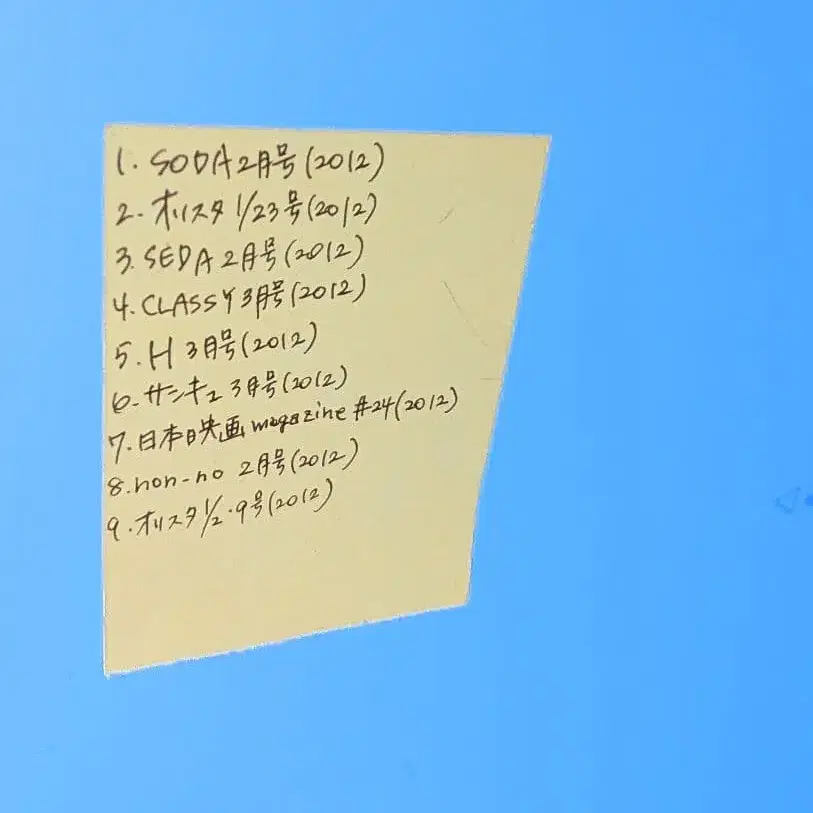 1. SODA 2月号 (2012)
2. オリスタ 1/23号 (2012)
3. SEDA 2月号 (2012)
4. CLASSY 3月号 (2012)
5. H 3月号 (2012)
6. サンキュ 3月号 (2012)
7. 日本映画 magazine #24 (2012)
8. non-no 2月号 (2012)
9. オリスタ 1/2・9号 (2012)